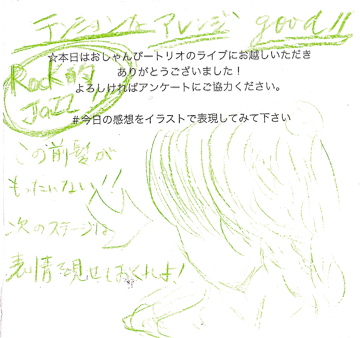 テンションな アレンジ good!!
☆本日はおしゃんぴートリオのライブにお越しいただき
ありがとうございました！
よろしければアンケートにご協力ください。
Rock的
Jazz
#今日の感想をイラストで表現してみて下さい
この前髪が
もったいない!!
次のステージは
表情を見せておくれよ!